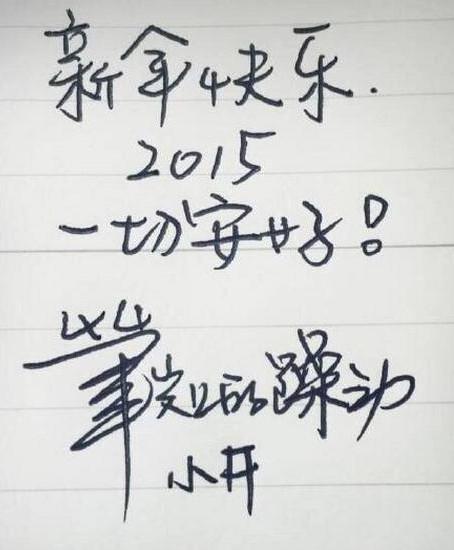 新年快乐.
2015
一切安好!
笔尖上的躁动
小开